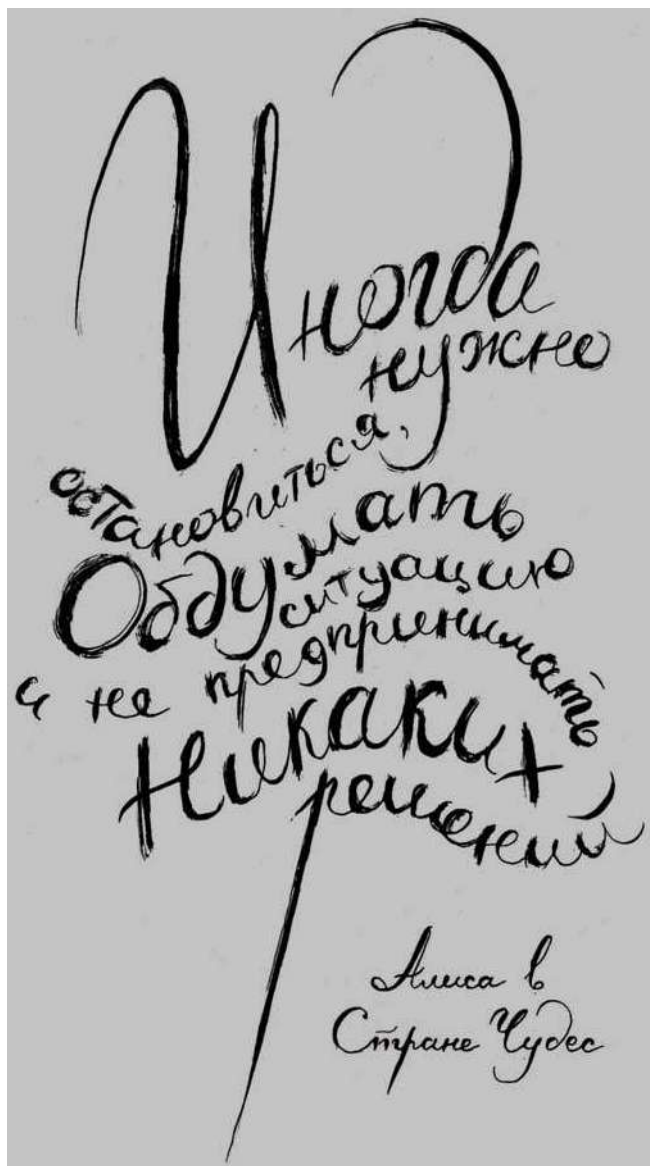 Иногда
нужно
остановиться,
Обдумать
ситуацию
и не предпринимать
Никаких
решений
Алиса в
Стране Чудес